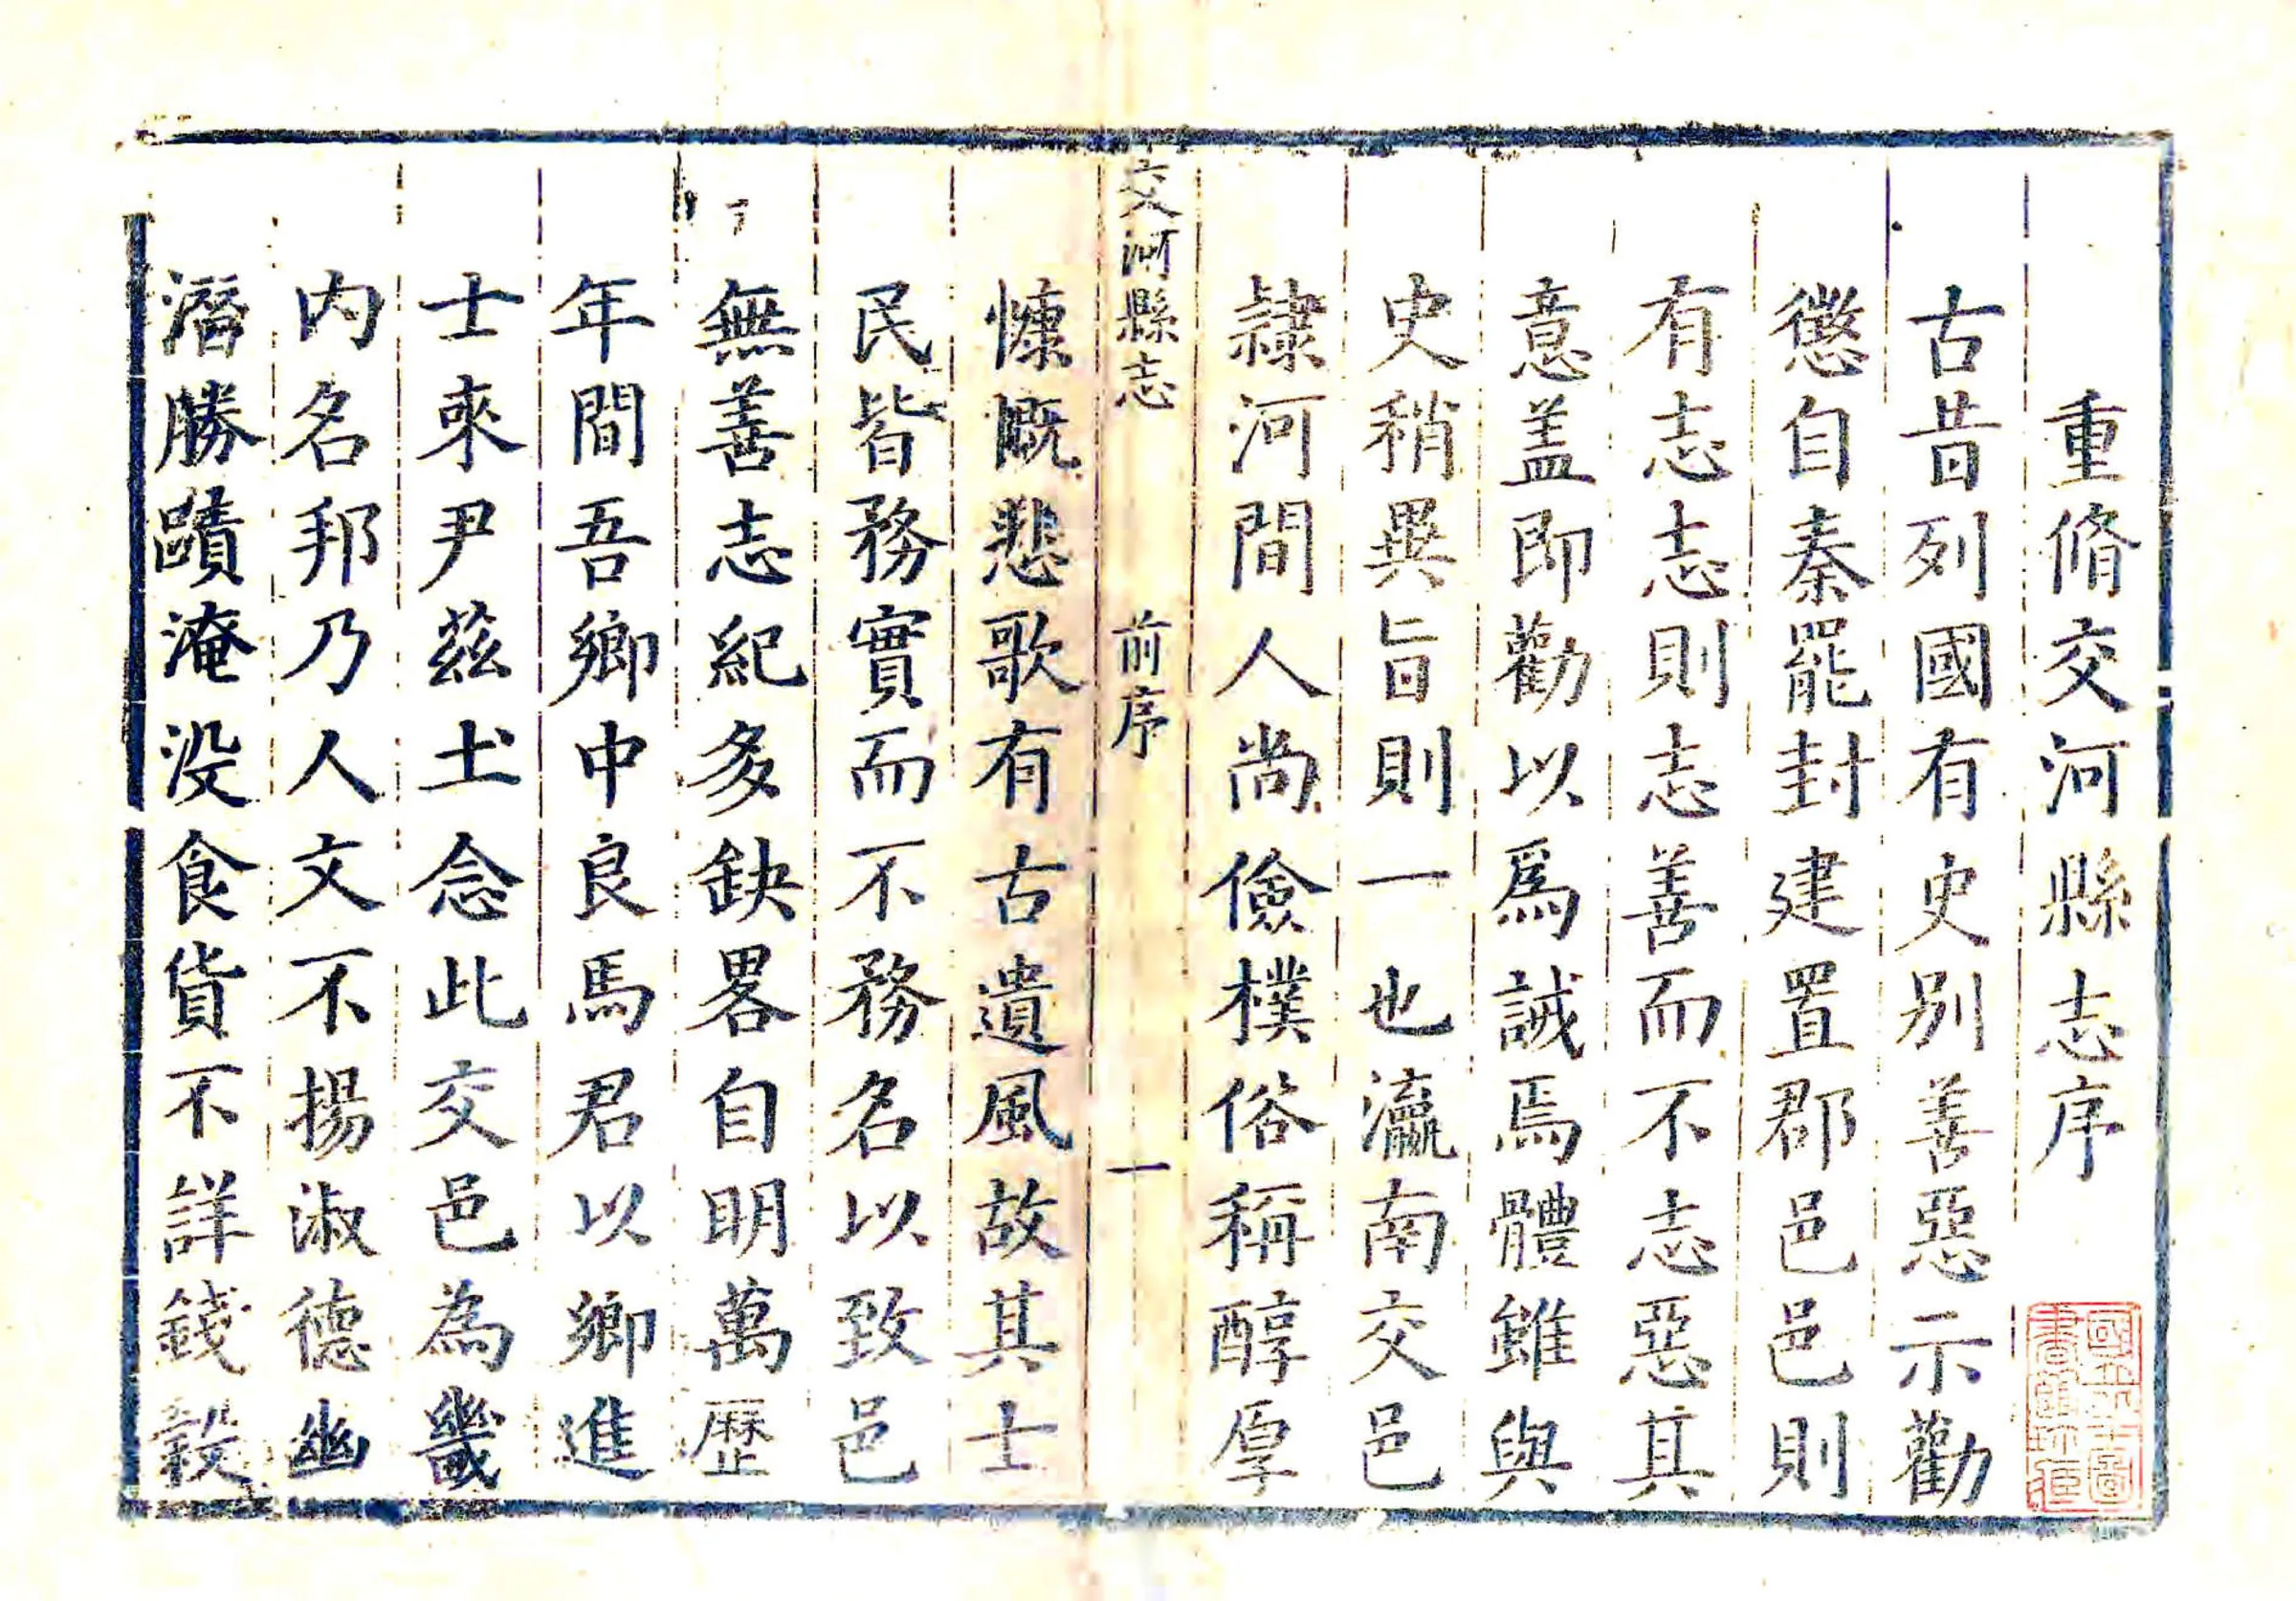 重脩交河縣志序
古昔列國有史别善惡示勸
懲自秦罷封建置郡邑邑則
有志志則志善而不志惡其
意盖即勸以爲誡焉體雖與
史稍異旨則一也瀛南交邑
隸河間人尚儉樸俗稱醇厚
交河縣志 前序 一
慷慨悲歌有古遺風故其士
民皆務實而不務名以致邑
無善志紀多缺畧自明萬歷
年間吾鄉中良馬君以鄉進
士來尹茲土念此交邑為畿
内名邦乃人文不揚淑德幽
潛勝蹟淹没食貨不詳錢穀